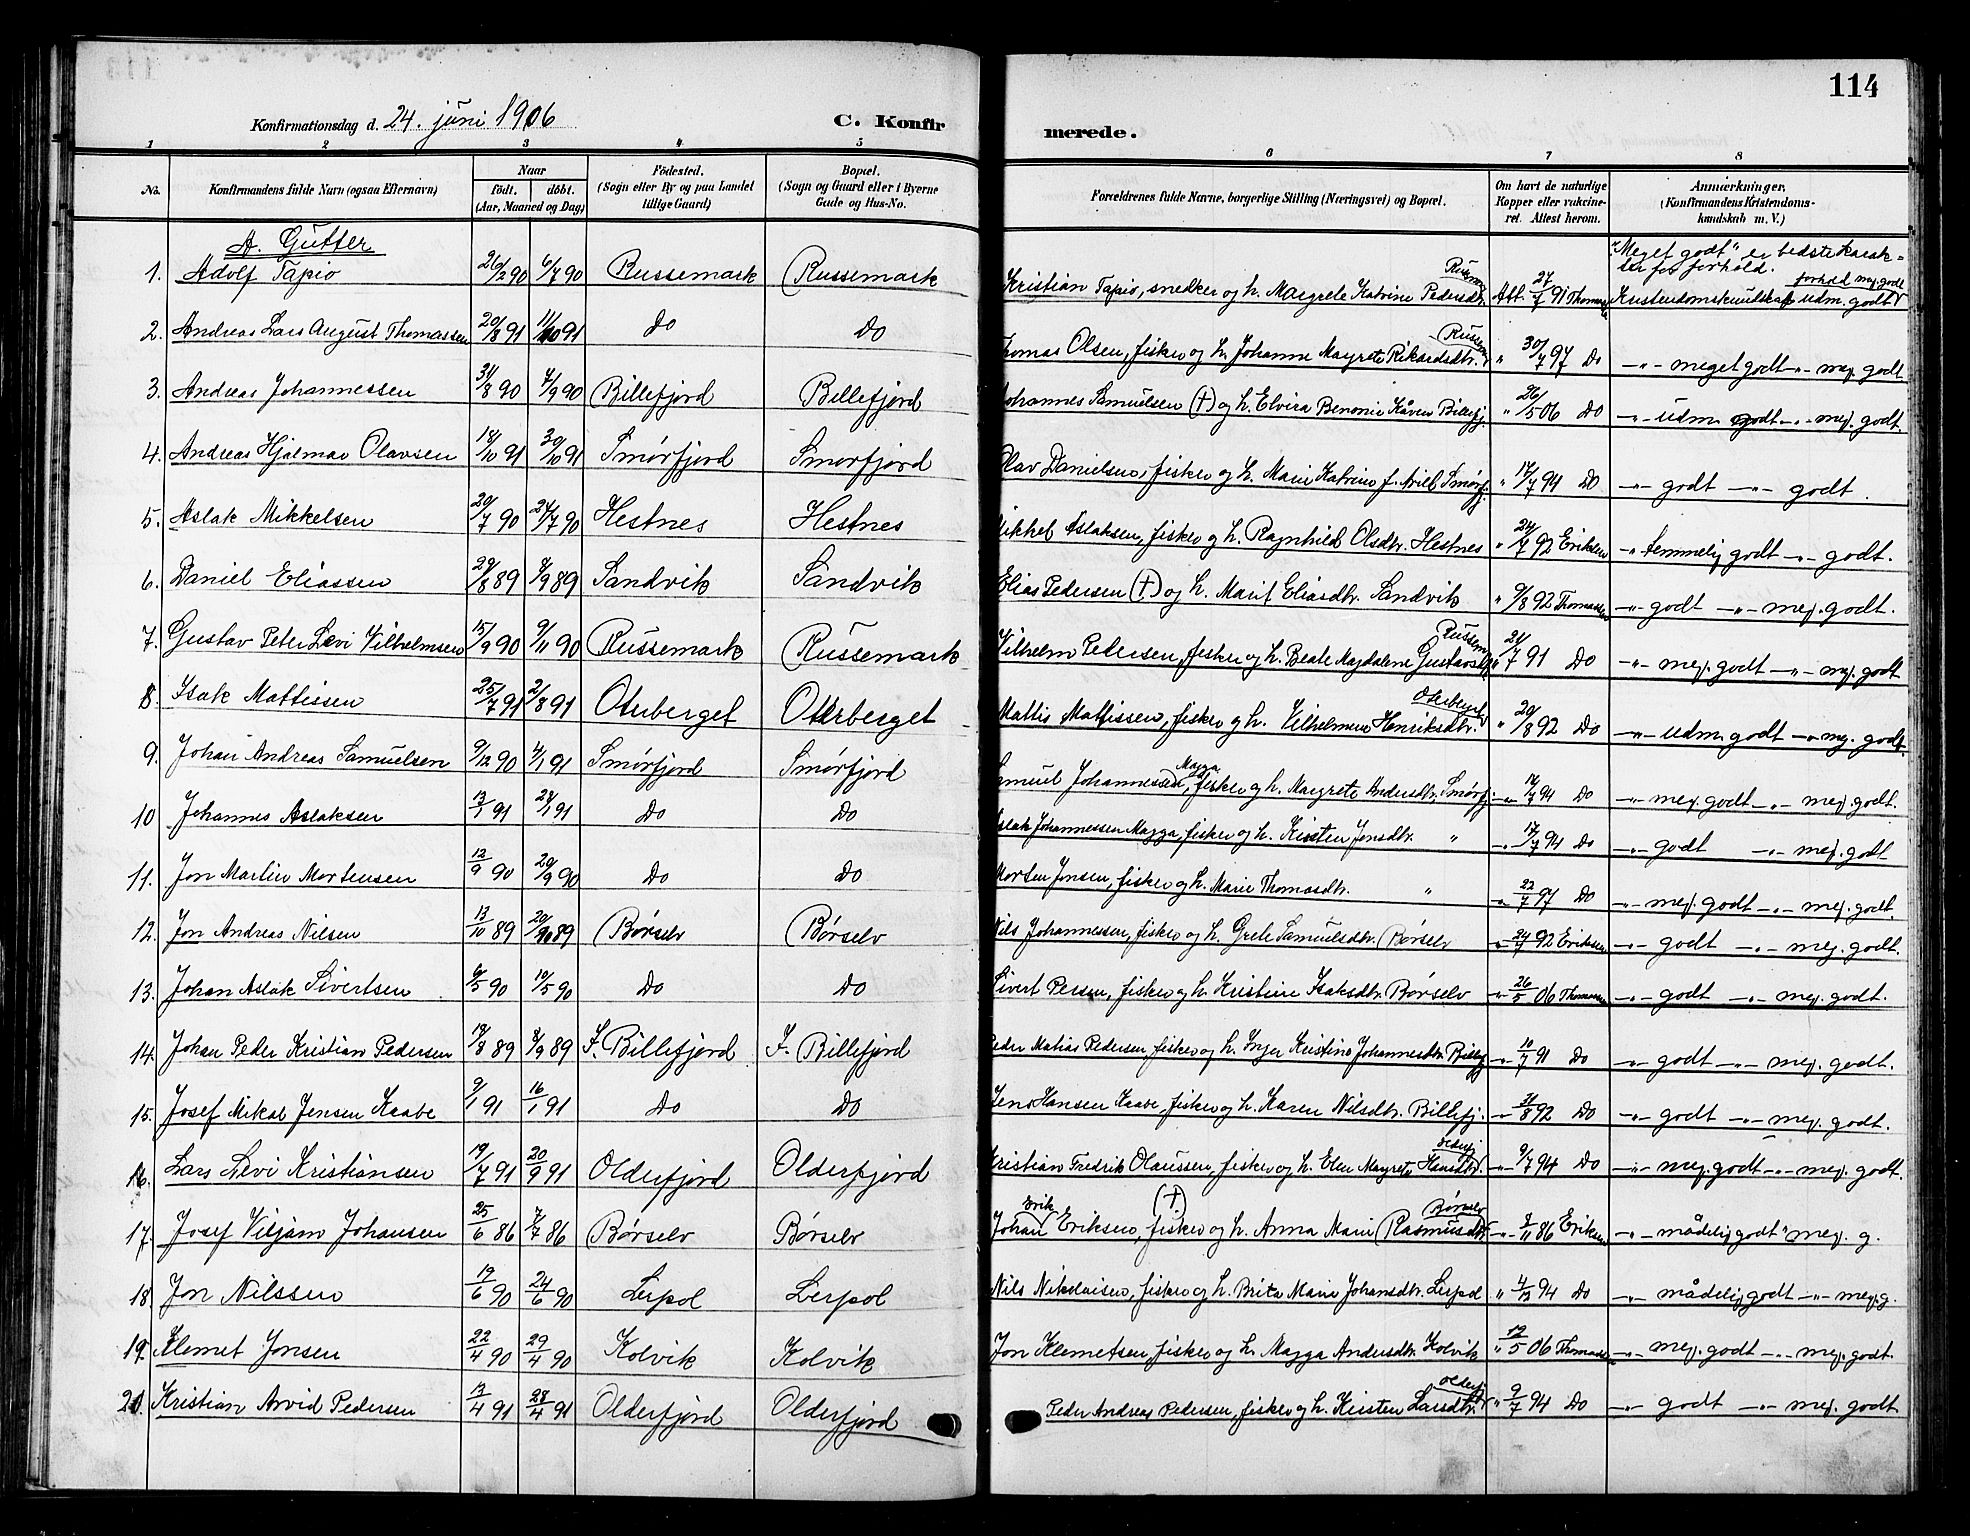 114
Konfirmationsdag d. 24. juni 1906 C. Konfirmerede.
1 2 3 4 5 6 7 8
No. Konfirmandens fulde Navn (ogsaa Efternavn) Naar født. døbt. (Aar, Maaned og Dag) Födested. (Sogn eller By og paa Landet tillige Gaard) Bopæl. (Sogn og Gaard eller i Byerne Gade og Hus-No. Forældrenes fulde Navne, borgerlige Stilling (Næringsvei) og Bopæl. Om havt de naturlige Kopper eller vakcineret. Attest herom. Anmærkninger. (Konfirmandens Kristendomskundskab m. V.)
A. Gutter
"Meget godt" er bedste karakter for forhold.
1. Adolf Tapio 26/2 90 6/7 90 Russemark Russemark Kristian Tapio, snedker og h. Margrete Katrine Pedersdtr. Att. 27/7 91 Kristendomskundskap udm. godt forhold meg. godt
2. Andreas Lars August Thomassen 20/8 91 11/10 91 Do Do Thomas Olsen, fisker og h. Johanne Margrete Rikardsdtr. " 30/7 97 Do -"- meget godt -"- meg. godt
3. Andreas Johannessen 31/8 90 7/9 90 Billefjord Billefjord Johannes Samuelsen (†) og h. Elvira Benonie Kåven Billefj. " 26/5 06 Do -"- udm. godt -"- meg. godt.
4. Andreas Hjalmar Olavsen 18/10 91 30/10 91 Smørfjord Smørfjord Olav Danielsen, fisker og h. Marie Katrine f. Smørfj. " 17/7 94 Do -"- godt -"- godt.
5. Aslak Mikkelsen 20/7 90 27/7 90 Hestnes Hestnes Mikkel Aslaksen, fisker og h. Ragnhild Olsdtr. Hestnes " 24/7 92 Eriksen -"- temmelig godt -"- godt.
6. Daniel Eliassen 29/8 89 8/9 89 Sandvik Sandvik Elias Pedersen (†) og h. Marit Eliasdtr. Sandvik " 9/8 92 Thomassen -"- godt -"- meg. godt.
7. Gustav Peter Levi Vilhelmsen 15/9 90 9/11 90 Russemark Russemark Vilhelm Pedersen, fisker og h. Beate Magdalene Gustavsdtr. Russem. " 21/7 91 Do -"- meg. godt -"- meg. godt
8. Isak Mattissen 25/7 91 2/8 91 Oterberget Oterberget Mattis Mattissen, fisker og h. Vilhelmine Henriksdtr. Oterberget " 20/8 92 Do -"- udm. godt -"- meg. godt.
9. Johan Andreas Samuelsen 9/12 90 4/1 91 Smørfjord Smørfjord Samuel Johannessen Magga, fisker og h. Margrete Andersdtr. Smørfj. -"- 17/7 94 Do -"- meg. godt -"- meg. godt.
10 Johannes Aslaksen 13/1 91 24/1 91 Do Do Aslak Johannessen Magga, fisker og h. Kirsten Jonsdtr. " -"- 17/7 94 Do -"- godt -"- meg. godt
11. Jon Martin Mortensen 12/9 90 29/9 90 Do Do Morten Jonsen, fisker og h. Marie Thomasdtr. " -"- 22/7 97 Do -"- meg. godt -"- meg. godt.
12. Jon Andreas Nilsen 13/10 89 20/10 89 Børselv Børselv Nils Johannessen, fisker og h. Grete Samuelsdtr. Børselv -"- 24/7 92 Eriksen -"- godt -"- meg. godt.
13. Johan Aslak Sivertsen 6/5 90 19/5 90 Do Do Sivert Persen, fisker og h. Kristine Isaksdtr. Børselv -"- 26/5 06 Thomassen -"- godt -"- meg. godt.
14. Johan Peder Kristian Pedersen 19/8 89 8/9 89 I. Billefjord I. Billefjord Peder Matias Pedersen, fisker og h. Inger Kristine Johannesdtr. Billefj -"- 10/7 91 Do -"- godt -"- meg. godt.
15. Josef Mikal Jensen Kaabe 9/1 91 16/1 91 Do Do Jens Hansen Kaabe, fisker og h. Karen Nilsdtr. Billefj. -"- 31/8 92 Do -"- godt -"- meg. godt.
16. Lars Levi Kristiansen 19/7 91 20/9 91 Olderfjord Olderfjord Kristian Fredrik Olaussen, fisker og h. Elen Margrete Hansdtr. Olderfj -"- 9/7 94 Do -"- meg. godt -"- meg. godt.
17. Josef Viljam Johansen 25/6 86 7/7 86 Børselv Børselv Johan Erik Eriksen, fisker (†) og h. Anna Marie Rasmusdtr Børselv -"- 8/11 86 Eriksen -"- mådelig godt " meg. g.
18 Jon Nilssen 19/6 90 24/6 90 Lerpol Lerpol Nils Nikolaisen, fisker og h. Brita Marie Johansdtr. Lerpol " 4/12 94 Do -"- mådelig godt -"- meg. g.
19. Klemet Jonsen 22/4 90 29/4 90 Kolvik Kolvik Jon Klemetsen, fisker og h. Magga Andersdtr. Kolvik " 12/5 06 Thomassen -"- meg. godt -"- meg. godt.
20. Kristian Arvid Pedersen 13/4 91 28/4 91 Olderfjord Olderfjord Peder Andreas Pedersen, fisker og h. Kirsten Larsdtr. Olderfj " 9/7 94 Do -"- godt -"- meg. godt.